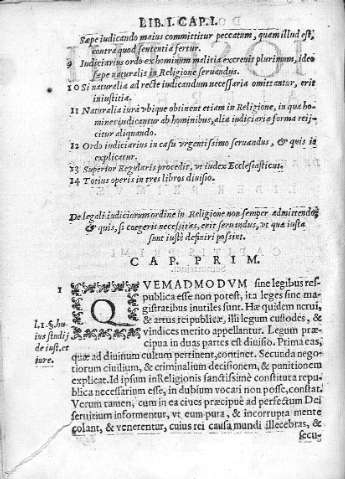 LIB. I. CAP. I.
Sæpe iudicando maius committitur peccatum, quam illud est,
contra quod sententia fertur.
9 Iudiciarius ordo ex hominum malitia excreuit plurimum, ideo
sæpe naturalis in Religione seruandus.
10 Si naturalia ad recte iudicandum necessaria omittantur, erit
iniustitia.
11 Naturalia iura vbique obtinent etiam in Religione, in qua ho-
mines iudicantur ab hominibus, alia iudiciaria forma reij-
citur aliquando.
12 Ordo iudiciarius in casu vrgentissimo seruandus, & quis is
explicatur.
13 Superior Regularis procedit, vt iudex Ecclesiasticus.
14 Totius operis in tres libros diuisio.
De legali iudiciorum ordine in Religione non semper admittendo,
& quis, si coegerit necessitas, erit seruandus, vt qua iusta
sunt iuste definiri possint.
CAP. PRIM.
1
QVEMADMODVM sine legibus res-
publica esse non potest, ita leges sine ma-
gistratibus inutiles sunt. Hæ quidem nerui,
& artus reipublicæ, illi legum custodes, &
vindices merito appellantur. Legum præ-
cipua in duas partes est diuisio. Prima eas,
l. 1. §. hu-
ius studij
de iust. et
iure.
quæ ad diuinum cultum pertinent, continet. Secunda nego-
tiorum ciuilium, & criminalium decisionem, & punitionem
explicat. Id ipsum in Religionis sanctissimè constituta repu-
blica necessarium esse, in dubium vocari non posse, constat.
Verum tamen, cum in ea ciues præcipuè ad perfectum Dei
seruitium informentur, vt eum pura, & incorrupta mente
colant, & venerentur, cuius rei causa mundi illecebras, &
secu-